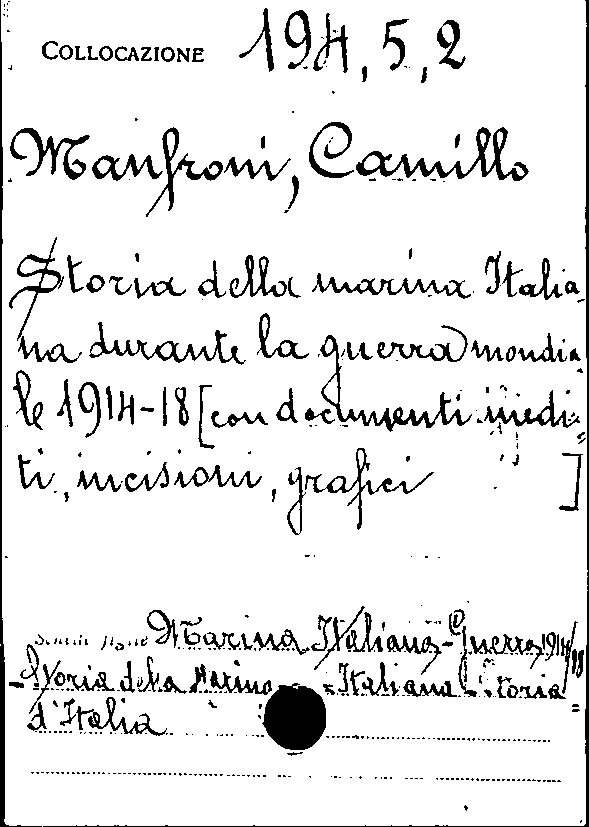 COLLOCAZIONE 194, 5, 2
Manfroni, Camillo
Storia della marina Italia-
na durante la guerra mondia-
le 1914-18 [con documenti inedi=
ti, incisioni, grafici ]
Marina Italiana - Guerra 1914/18
- Storia della Marina - = Italiana - Storia =
d'Italia